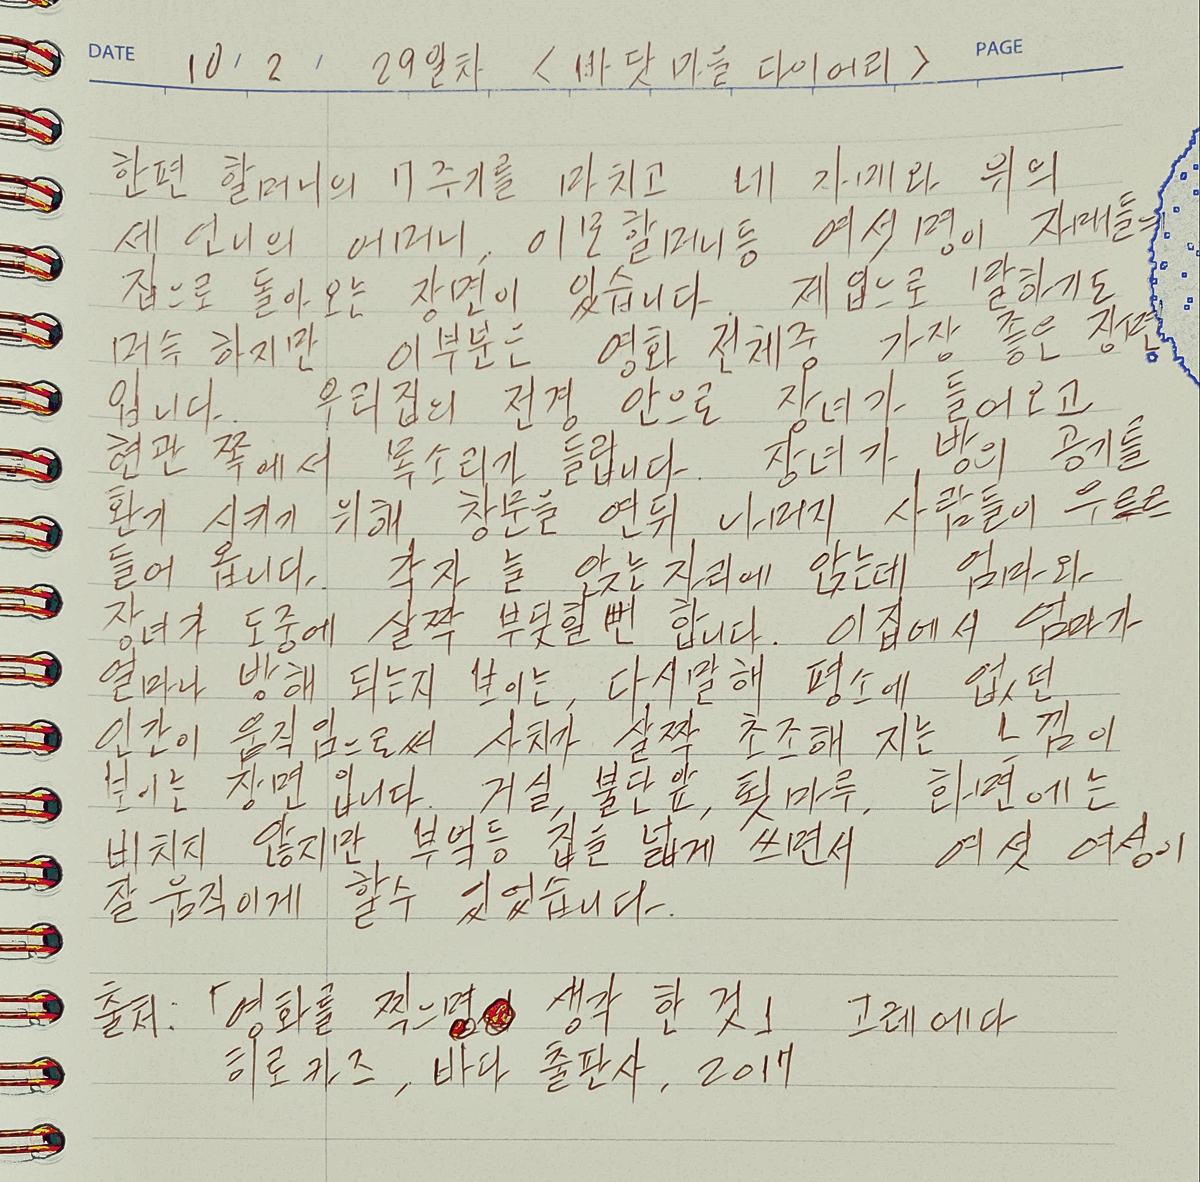 DATE 10 / 2 / 29일차 <바닷마을 다이어리> PAGE
한편 할머니의 7주기를 마치고 네 자매와 위의
세 언니의 어머니, 이모할머니등 여섯명이 자매들의
집으로 돌아오는 장면이 있습니다. 제 입으로 말하기도
머쓱 하지만 이부분은 영화 전체중 가장 좋은 장면
입니다. 우리집의 전경 안으로 장녀가 들어오고
현관 쪽에서 목소리가 들립니다. 장녀가 방의 공기를
환기 시키기 위해 창문을 연뒤 나머지 사람들이 우르르
들어 옵니다. 각자 늘 앉는자리에 앉는데 엄마와
장녀가 도중에 살짝 부딪힐뻔 합니다. 이집에서 엄마가
얼마나 방해 되는지 보이는, 다시말해 평소에 없던
인간이 움직임으로써 사치가 살짝 초조해 지는 느낌이
보이는 장면 입니다. 거실, 불단앞, 툇마루, 화면에는
비치지 않지만 부엌등 집을 넓게 쓰면서 여섯 여성이
잘 움직이게 할수 있었습니다.
출처: 「영화를 찍으며 생각 한 것」 고레에다
히로카즈, 바다 출판사, 2017